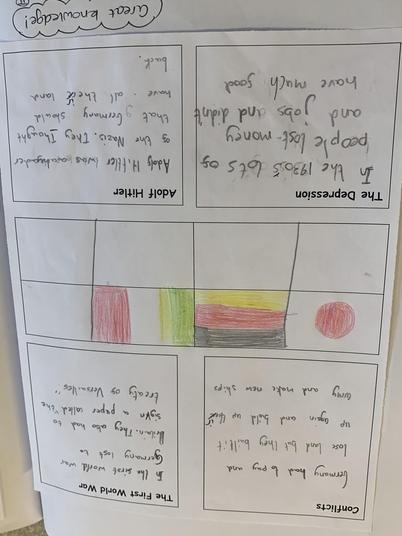 Conflicts
Germany had to pay and
lose land but they built it
up again and build up
army and make new ships
The First World War
In the first world war
Germany lost to
Britain. They also had to
sign a paper called "the
treaty of Versailles"
The Depression
In the 1930s lots of
people lost money
and jobs and didn't
have much good
Adolf Hitler
Adolf Hitler was
of the Nazis. They Thought
that germany should
have all their land
back.
Great knowledge!